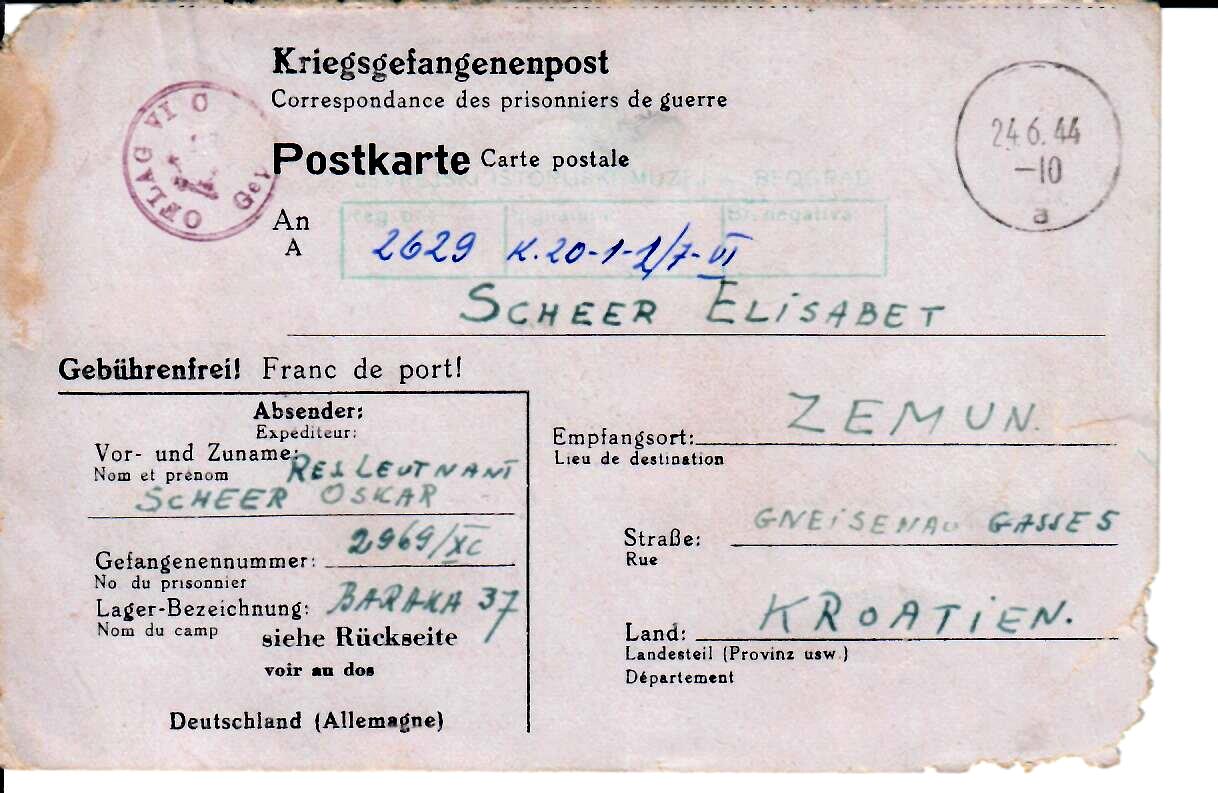 Kriegsgefangenenpost
Correspondance des prisonniers de guerre
OFLAG VI C
Gep
24.6.44
-10
a
Postkarte Carte postale
JEVREJSKI ISTORIJSKI MUZEJ - BEOGRAD
An
A
Reg. br. Signatura: Br. negativa:
2629 K.20-1-2/7-VI
SCHEER ELISABET
Gebührenfrei! Franc de port!
Absender:
Expéditeur:
Vor- und Zuname:
Nom et prénom
RES LEUTNANT
SCHEER OSKAR
Gefangenennummer: 2969/XC
No du prisonnier
Lager-Bezeichnung: BARAKA 37
Nom du camp
siehe Rückseite
voir au dos
Deutschland (Allemagne)
Empfangsort: ZEMUN.
Lieu de destination
Straße: GNEISENAU GASSE 5
Rue
Land: KROATIEN.
Landesteil (Provinz usw.)
Département